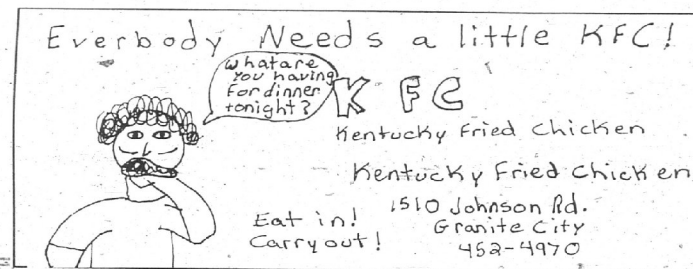 Everbody Needs a little KFC!
whatare
You having
For dinner
tonight?
KFC
Kentucky Fried Chicken
Kentucky Fried Chicken
Eat in!
Carryout!
1510 Johnson Rd.
Granite City
452-4970